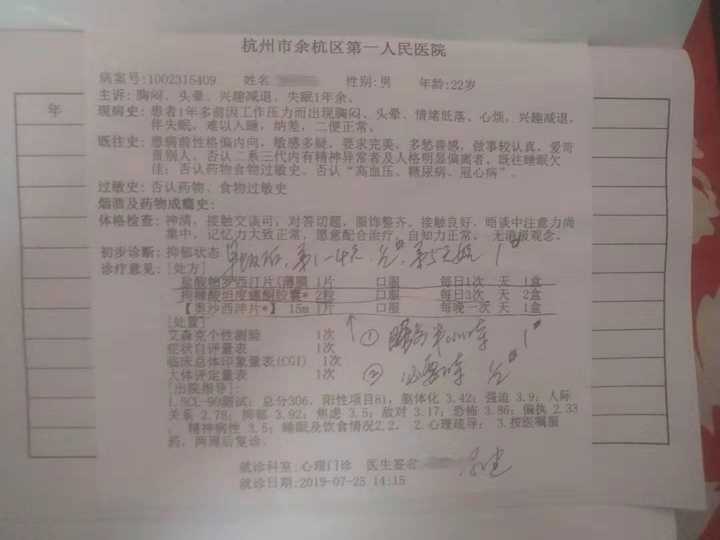 杭州市余杭区第一人民医院
年
病案号:1002315409 姓名 性别:男 年龄:22岁
主诉:胸闷、头晕、兴趣减退,失眠1年余。
现病史:患者1年多前因工作压力而出现胸闷、头晕、情绪低落、心烦,兴趣减退,
伴失眠,难以入睡,纳差,二便正常。
既往史:患病前性格偏内向,敏感多疑,要求完美,多愁善感,做事较认真,爱苛
责别人,否认二系三代内有精神异常者及人格明显偏离者,既往睡眠欠
佳;否认药物食物过敏史、否认“高血压、糖尿病、冠心病”。
过敏史:否认药物、食物过敏史
烟酒及药物成瘾史:
体格检查:神清,接触交谈可,对答切题,服饰整齐,接触良好,晤谈中注意力尚
集中,记忆力大致正常,愿意配合治疗,自知力正常,无消极观念。
初步诊断:抑郁状态
诊疗意见:[处方]
盐酸帕罗西汀片(薄膜 1片 口服 每日1次 天 1盒
枸橼酸坦度螺酮胶囊* 2粒 口服 每日3次 天 2盒
【奥沙西泮片*】 15m 1片 口服 每晚一次 天 1盒
[处置]
艾森克个性测验 1次 ①
症状自评量表 1次
临床总体印象量表(CGI) 1次 ②
大体评定量表 1次
[出院指导]:
1.SCL-90测试:总分306,阳性项目81,躯体化 3.42;强迫 3.9;人际
关系 2.78;抑郁 3.92;焦虑 3.5;敌对 3.17;恐怖 3.86;偏执 2.33
精神病性 3.5;睡眠及饮食情况2.2. 2.心理疏导; 3.按医嘱服
药,两周后复诊。
就诊科室:心理门诊 医生签名
就诊日期:2019-07-23 14:15